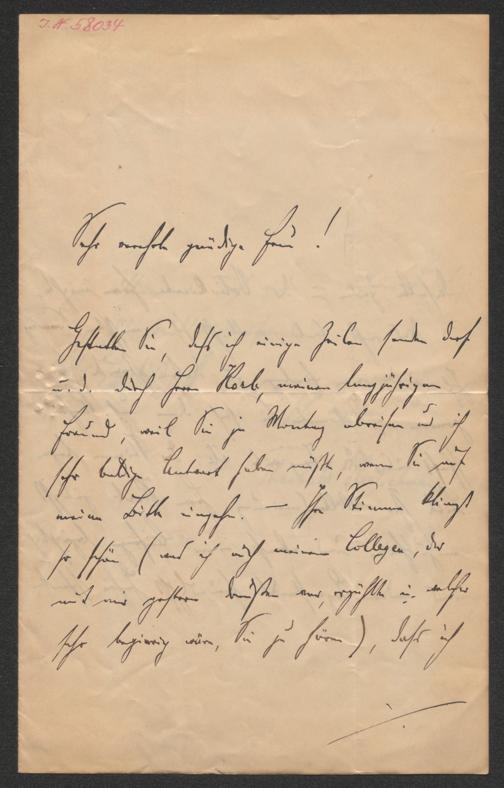 I. N. 58034
Sehr verehrte gnädige Frau!
Gestatten Sie, daß ich einige Zeilen sende
u. d. durch Herrn Korb, meinen langjährigen
Freund, weil Sie ja Montag abreisen und ich
sehr baldige Antwort haben müßte, wenn Sie auf
meine Bitte eingehn. — Ihre Stimme klingt
so schön (was ich auch meinem Collegen, der
mit mir gestern war, erzählte u. welcher
sehr begierig wäre, Sie zu hören), daß ich